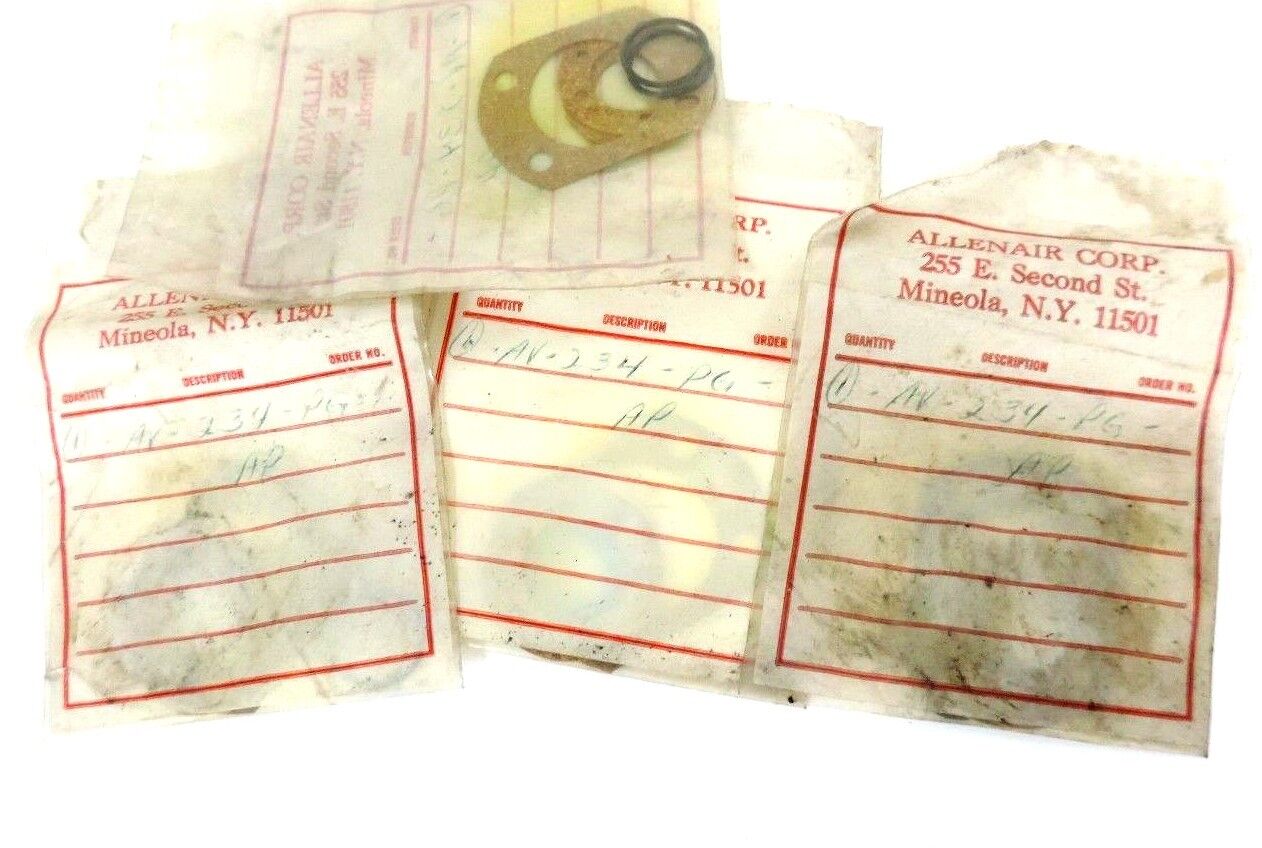 ALLENAIR CORP.
255 E. Second St.
Mineola, N.Y.
ALLEN
255 E.
Mineola, N.Y. 11501
QUANTITY DESCRIPTION ORDER NO.
(1) - AV-234-PG-
AP
RP.
t.
11501
QUANTITY DESCRIPTION ORDER
(1) - AV-234-PG-
AP
ALLENAIR CORP.
255 E. Second St.
Mineola, N.Y. 11501
QUANTITY DESCRIPTION ORDER NO.
(1) - AV-234-PG-
AP